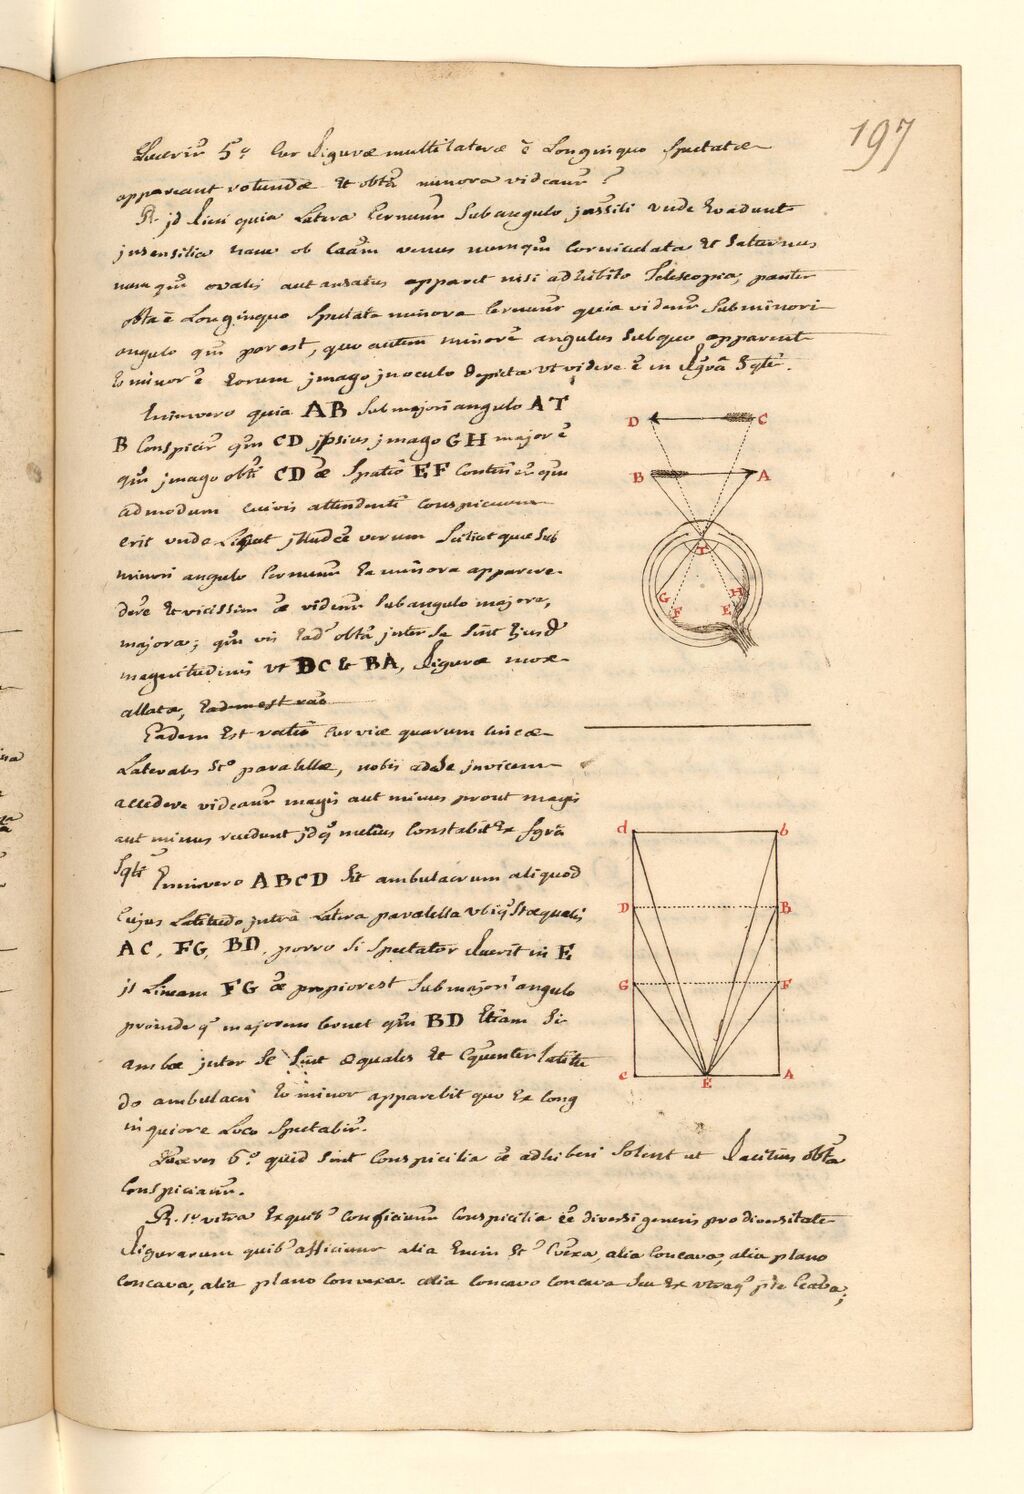 197
Quaerir 5.° Cur figurae multilaterae è Longinquo spectatae
appareant rotundae et obta minora videanr ?
R. id fieri quia Latera Cernunr Sub angulo Evadunt
insensilia nam ob Caam venus numqm Corniculata Et Saturnus
numqm ovalis aut ansatus apparet nisi adhibito Telescopio; pariter
obta è Longinquo Spectata minora Cernunr quia videnr Sub minori
angulo qm par est, quo autem minor ē angulus Subquo apparent
Eo minor ē Eorum jmago jn oculo depicta vt videre ē in fgra Sqti.
Enimvero quia AB Sub majori angulo AT
B Conspicir qm CD jpsius jmago GH major ē
qm jmago obti CD Spatio EF
admodum cuivis attendenti conspicuum
erit vnde Liquet verum Scilicet quae Sub
minori angulo Cernunr Ea minora apparere
Et vicissim videnr Sub angulo majore,
majora; qm vis Ead obta jnter Se Sint Ejusd
magnitudinis vt DC & BA, figurae mox
allatae,
Eadem Est ratio Cur viae quarum lineae
Laterales St parallelae, nobis ad Se jnvicem
accedere videanr magis aut minus prout magis
aut minus recedunt jdq melius Constabit Ex fgra
Sqti Enimvero ABCD Sit ambulacrum aliquod
Cujus Latitudo jntra Latera parallela vbiq St aequalis
AC, FG, BD, porro Si Spectator fuerit in E
Lineam FG propior est Sub majori angulo
proinde q majorem qm BD Etiam Si
ambae jnter Se Sint aequales Et Cquenter latitu
do ambulacri Eo minor apparebit quo Ex long
inquiore Loco Spectabir.
Quaeres 6.° quid Sint Conspicilia adhiberi Solent ut facilius obta
Conspicianr.
R. 1.° vitra Ex quib Conficiunr Conspicilia diversi generis pro diversitate
figurarum quib afficiunr alia Enim St Cvexa, alia Concava, alia plano
concava, alia plano convexa. alia concavo concava Seu Ex vtraq pte Ccava;
D
C
B
A
T
G
F
H
E
d
b
D
B
G
F
c
E
A